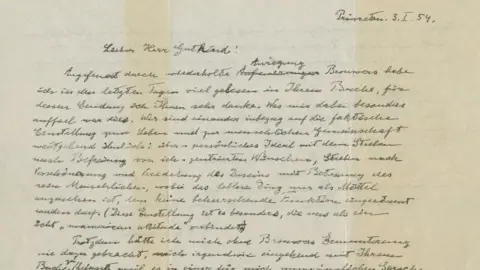 Princeton. 3. I. 54.
Lieber Herr Gutkind!
Anregung
Angefeuert durch wiederholte Brouwers habe
ich in den letzten Tagen viel gelesen in Ihrem Buche, für
dessen Sendung ich Ihnen sehr danke. Was mir dabei besonders
auffiel war dies. Wir sind einander inbezug auf die faktische
Einstellung zum Leben und zur menschlichen Gemeinschaft
weitgehend ähnlich: über-persönliches Ideal mit dem Streben
nach Befreiung von ich-zentrierten Wünschen, Streben nach
Verschönerung und Veredelung des Daseins mit Betonung des
rein Menschlichen, wobei das leblose Ding nur als Mittel
anzusehen ist, dem keine beherrschende Funktion eingeräumt
werden darf. (Diese Einstellung ist es besonders, die uns als ein
echt "unamerican attitude" verbindet)
Trotzdem hätte ich mich ohne Brouwers Ermunterung
nie dazu gebracht, mich irgendwie eingehend mit Ihrem
weil es in einer für mich Sprache